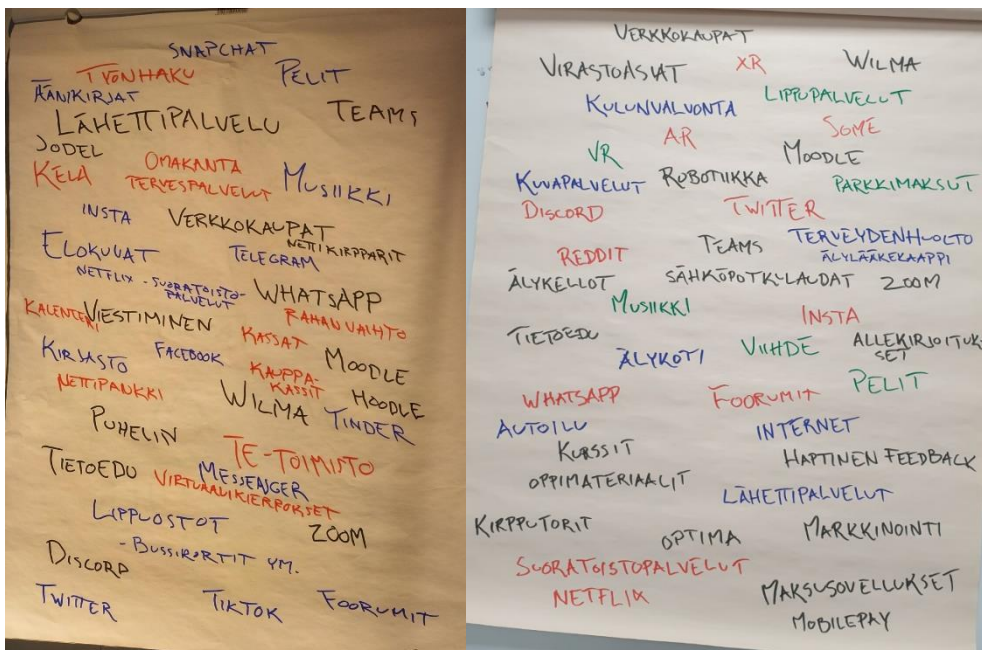 SNAPCHAT
TYÖNHAKU
PELIT
ÄÄNIKIRJAT
LÄHETTIPALVELU
TEAMS
JODEL
OMAKANTA
KELA
TERVESPALVELUT
MUSIIKKI
INSTA
VERKKOKAUPAT
NETTIKIRPPARIT
ELOKUVAT
TELEGRAM
NETFLIX - SUORATOISTO-
PALVELUT
WHATSAPP
KALENTERI
VIESTIMINEN
RAHANVAIHTO
KASSAT
KIRJASTO
FACEBOOK
MOODLE
KAUPPA-
KASSIT
NETTIPANKKI
WILMA
HOODLE
TINDER
PUHELIN
TE-TOIMISTO
TIETOEDU
MESSENGER
VIRTUAALIKIERROKSET
LIPPUOSTOT
ZOOM
- BUSSIKORTIT YM.
DISCORD
TWITTER
TIKTOK
FOORUMIT
VERKKOKAUPAT
VIRASTOASIAT
XR
WILMA
KULUNVALVONTA
LIPPUPALVELUT
AR
SOME
VR
MOODLE
KUVAPALVELUT
ROBOTIIKKA
PARKKIMAKSUT
DISCORD
TWITTER
REDDIT
TEAMS
TERVEYDENHUOLTO
ÄLYLÄÄKEKAAPPI
ÄLYKELLOT
SÄHKÖPOTKULAUDAT
ZOOM
MUSIIKKI
INSTA
TIETOEDU
ÄLYKOTI
VIIHDE
ALLEKIRJOITUK-
SET
PELIT
WHATSAPP
FOORUMIT
AUTOILU
INTERNET
KURSSIT
HAPTINEN FEEDBACK
OPPIMATERIAALIT
LÄHETTIPALVELUT
KIRPPUTORIT
OPTIMA
MARKKINOINTI
SUORATOISTOPALVELUT
NETFLIX
MAKSUSOVELLUKSET
MOBILEPAY